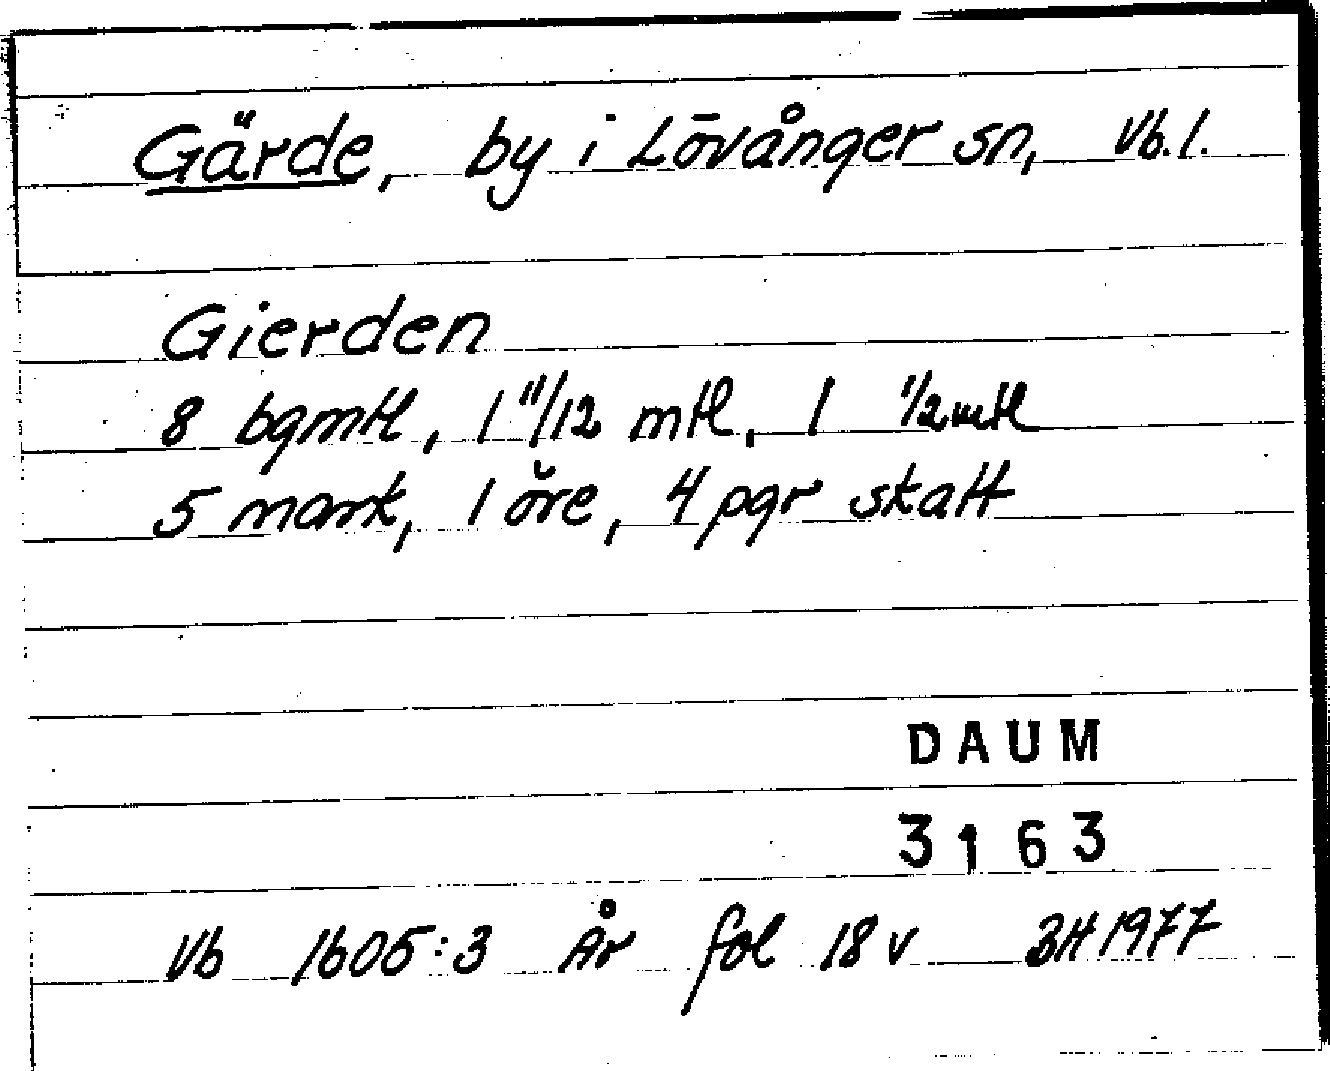 Gärde, by i Lövånger sn, Vb.l.
Gierden
8 bgmtl, 1 11/12 mtl, 1 1/2 mtl
5 mark, 1 öre, 4 pgr skatt
DAUM
3163
Vb 1605:3 År fol 18 v BH 1977